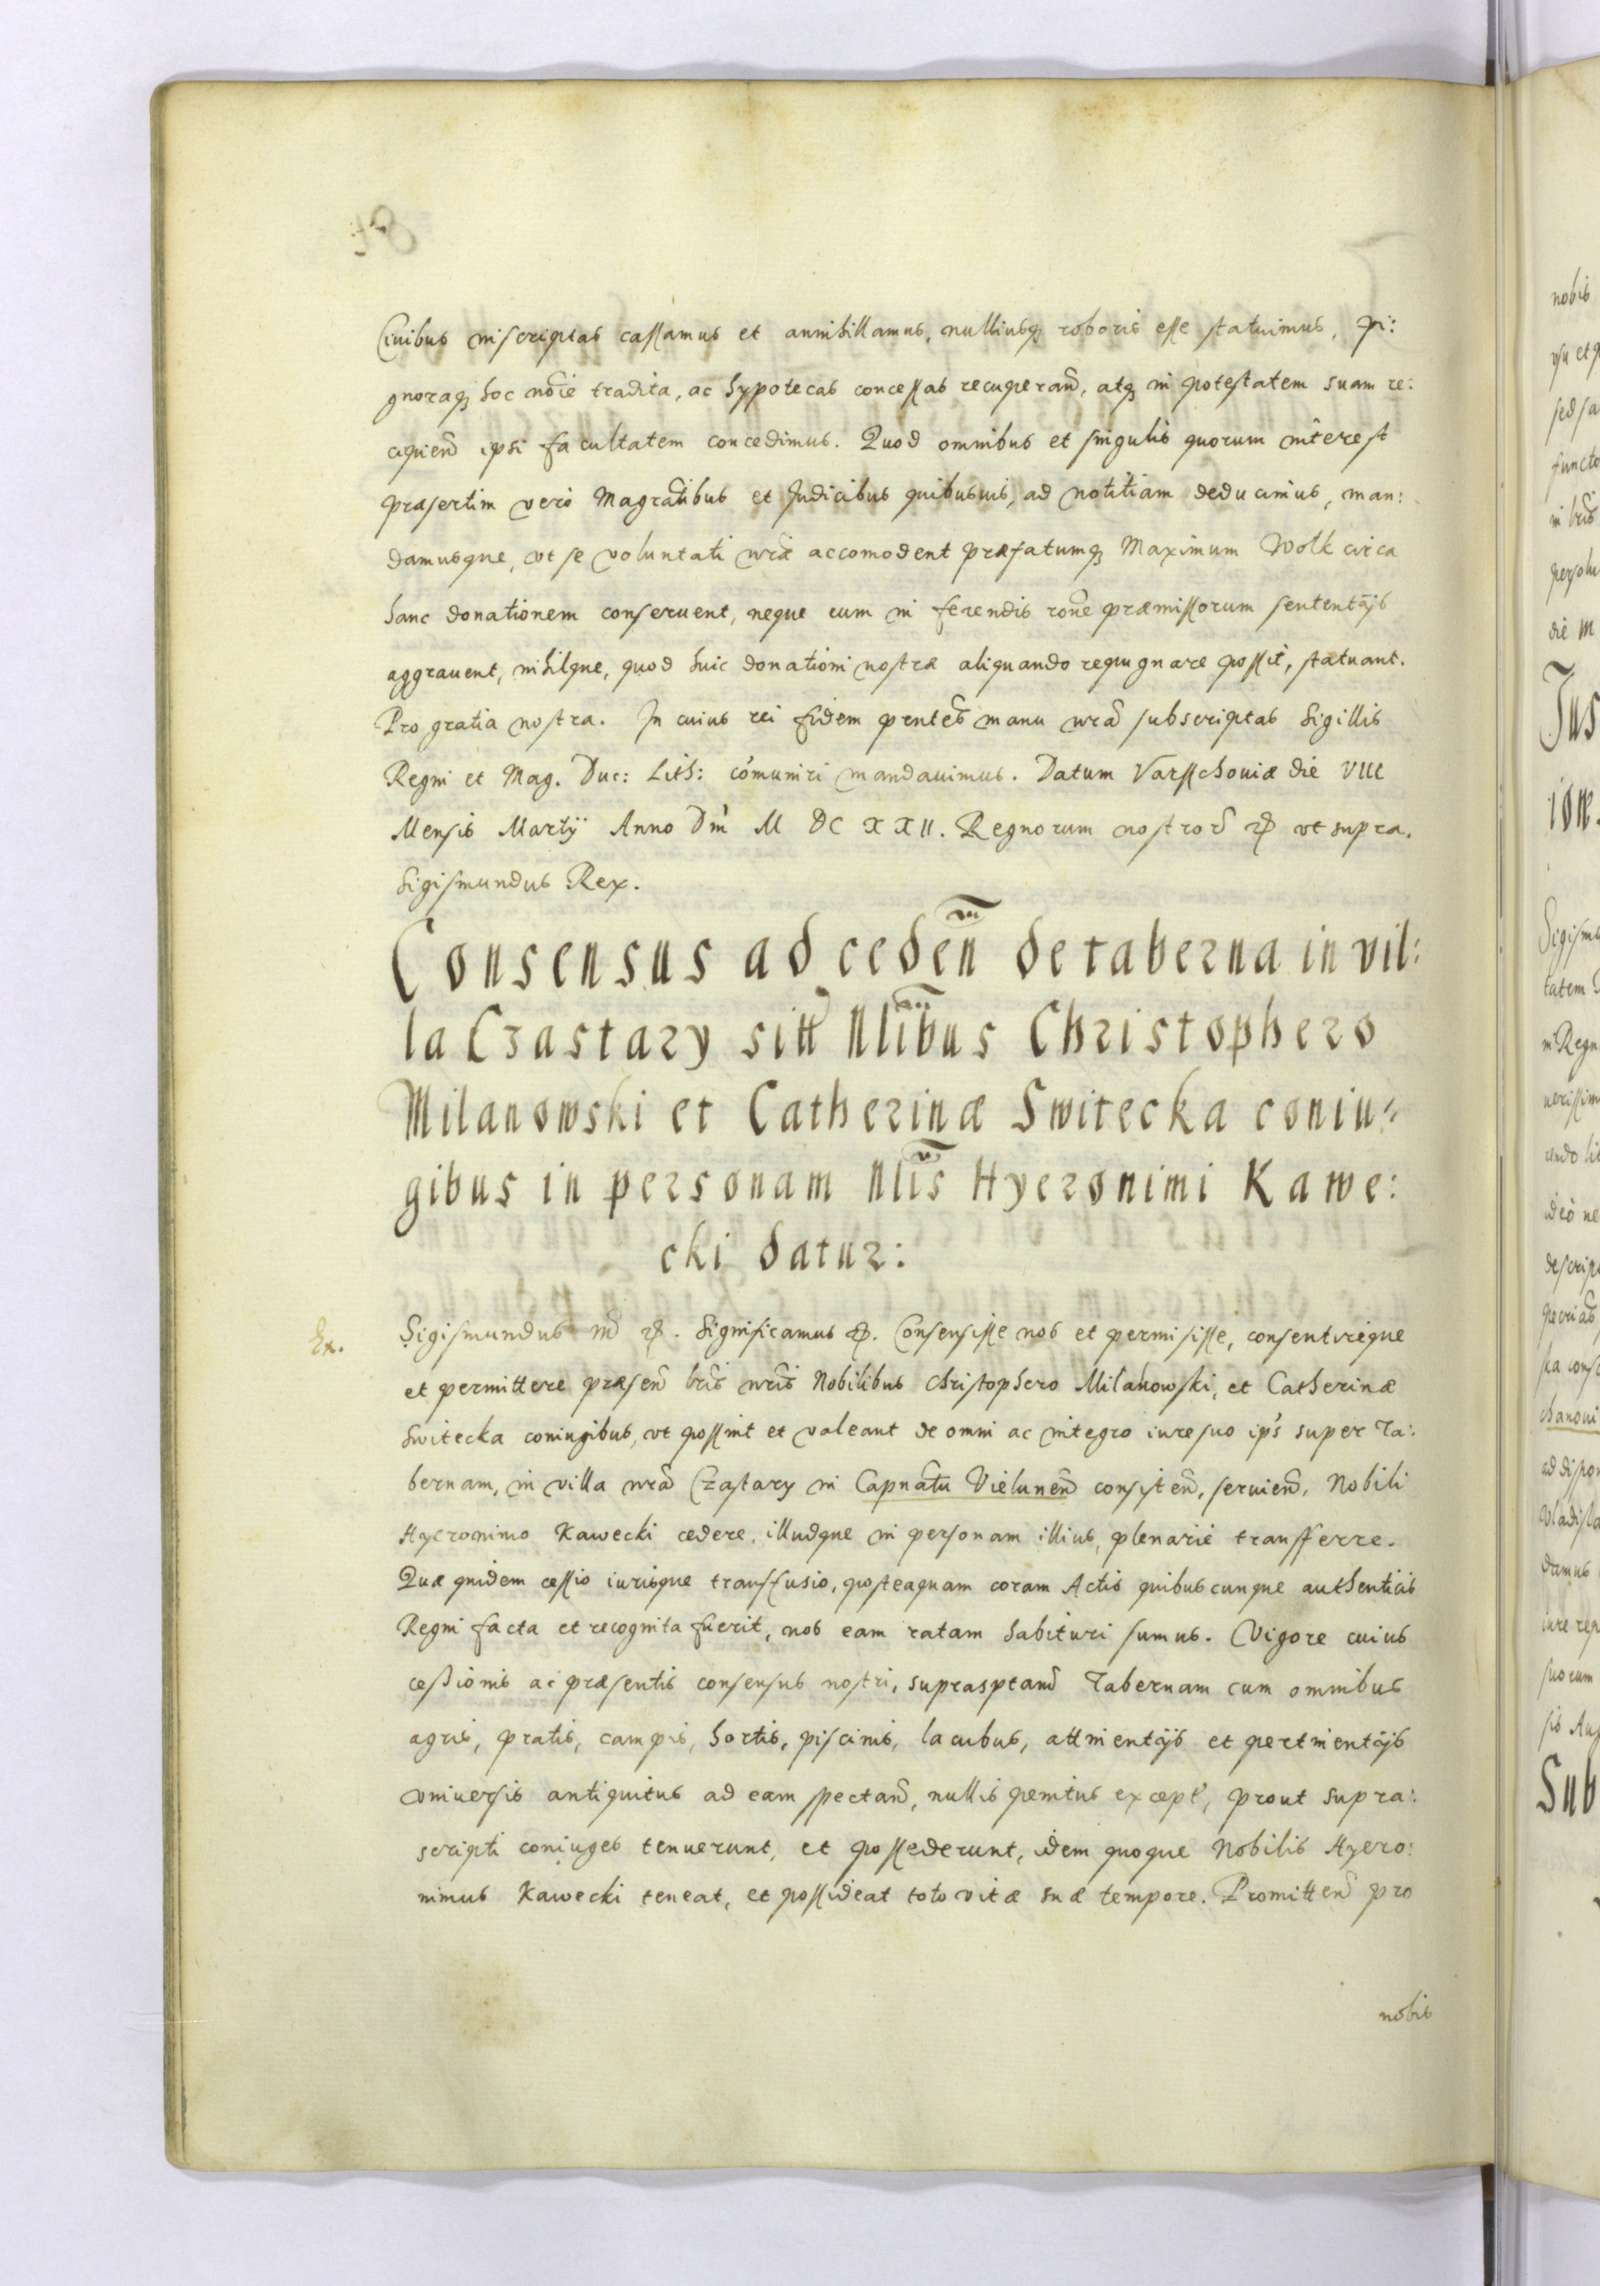 Ciuibus inscriptas cassamus et annihillamus, nulliusq₃ roboris esse statuimus, pi:
gnoraq₃ hoc no͠ie tradita, ac hypotecas concessas recuperan̄, atq₃ in potestatem suam re:
cipien̄ ipsi facultatem concedimus. Quod omnibus et singulis quorum interest
præsertim vero Magra͠tibus et Judicibus quibusuis, ad notitiam deducimus, man:
damusque, vt se voluntati nr͠æ accomodent præfatumq₃ Maximum Wolk circa
hanc donationem conseruent, neque eum in ferendis ro͠ne præmissorum sententijs
aggrauent, nihilque, quod huic donationi nostræ aliquando repugnare possit, statuant.
Pro gratia nostra. In cuius rei fidem pn̄tes manu nr͠a subscriptas Sigillis
Regni et Mag. Duc: Lith: co͠muniri mandauimus. Datum Varsschouiæ die VIII
Mensis Martij Anno Dn̄i M DC XXII. Regnorum nostror̄ etc vt supra.
Sigismundus Rex.
Consensus ad ceden̄ de taberna in vil:
la Czastary sitt Nli͠bus Christophero
Milanowski et Catherinæ Switecka coniu=
gibus in personam Nli͠s Hyeronimi Kawe:
cki datur:
Ex.
Sigismundus III etc. Significamus etc. Consensisse nos et permisisse, consentireque
et permittere præsen̄ lr͠is nr͠is Nobilibus Christophero Milanowski, et Catherinæ
Switecka coniugibus, vt possint et valeant de omni ac integro iure suo ip̄s super Ta:
bernam, in villa nr͠a Czastary in Capna͠tu Vielunen̄ consisten̄, seruien̄, Nobili
Hyeronimo Kawecki cedere, illudque in personam illius, plenarie transfferre.
Quæ quidem cessio iurisque transfusio, posteaquam coram Actis quibuscunque authenticis
Regni facta et recognita fuerit, nos eam ratam habituri sumus. Vigore cuius
cessionis ac præsentis consensus nostri, suprasptam̄ Tabernam cum omnibus
agris, pratis, campis, hortis, piscinis, lacubus, attinentijs et pertinentijs
vniuersis antiquitus ad eam spectan̄, nullis penitus except̄, prout supra:
scripti coniuges tenuerunt, et possederunt, idem quoque Nobilis Hyero:
nimus Kawecki teneat, et possideat toto vitæ suæ tempore. Promitten̄ pro
nobis